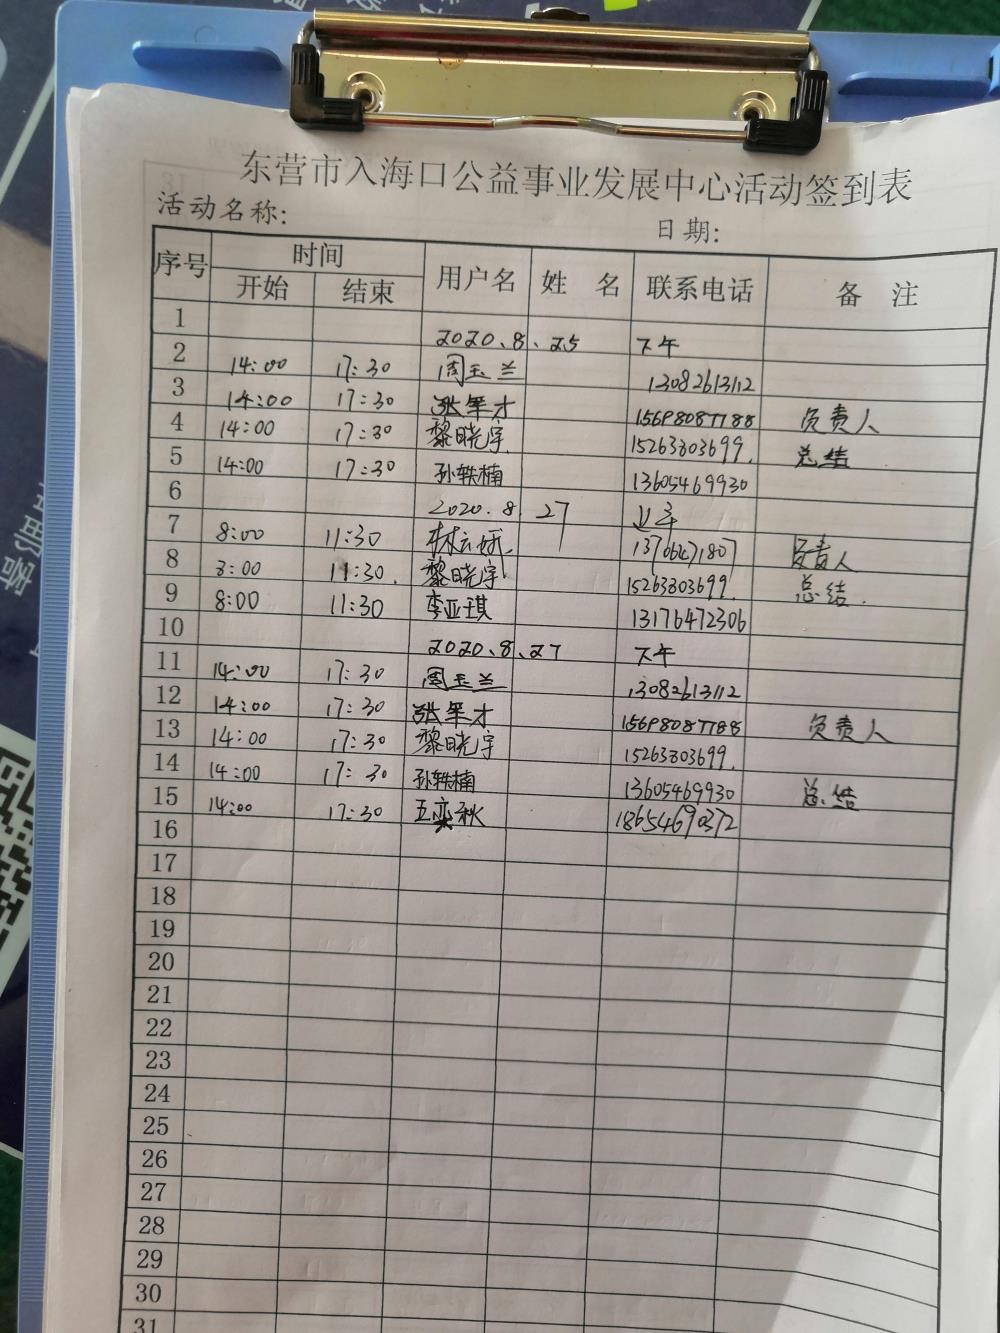 东营市入海口公益事业发展中心活动签到表
活动名称: 日期:
序号 时间 用户名 姓 名 联系电话 备 注
开始 结束
1 2020.8.25 下午
2 14:00 17:30 周玉兰 13082613112
3 14:00 17:30 张军才 15698087788 负责人
4 14:00 17:30 黎晓宇 15263803699 总结
5 14:00 17:30 孙轶楠 13605469930
6 2020.8.27 上午
7 8:00 11:30 林云娥 13706471807 负责人
8 8:00 11:30 黎晓宇 15263803699 总结
9 8:00 11:30 李亚琪 13176472306
10 2020.8.27 下午
11 14:00 17:30 周玉兰 13082613112
12 14:00 17:30 张军才 15698087788 负责人
13 14:00 17:30 黎晓宇 15263803699
14 14:00 17:30 孙轶楠 13605469930 总结
15 14:00 17:30 秋 18654690372
16
17
18
19
20
21
22
23
24
25
26
27
28
29
30
31